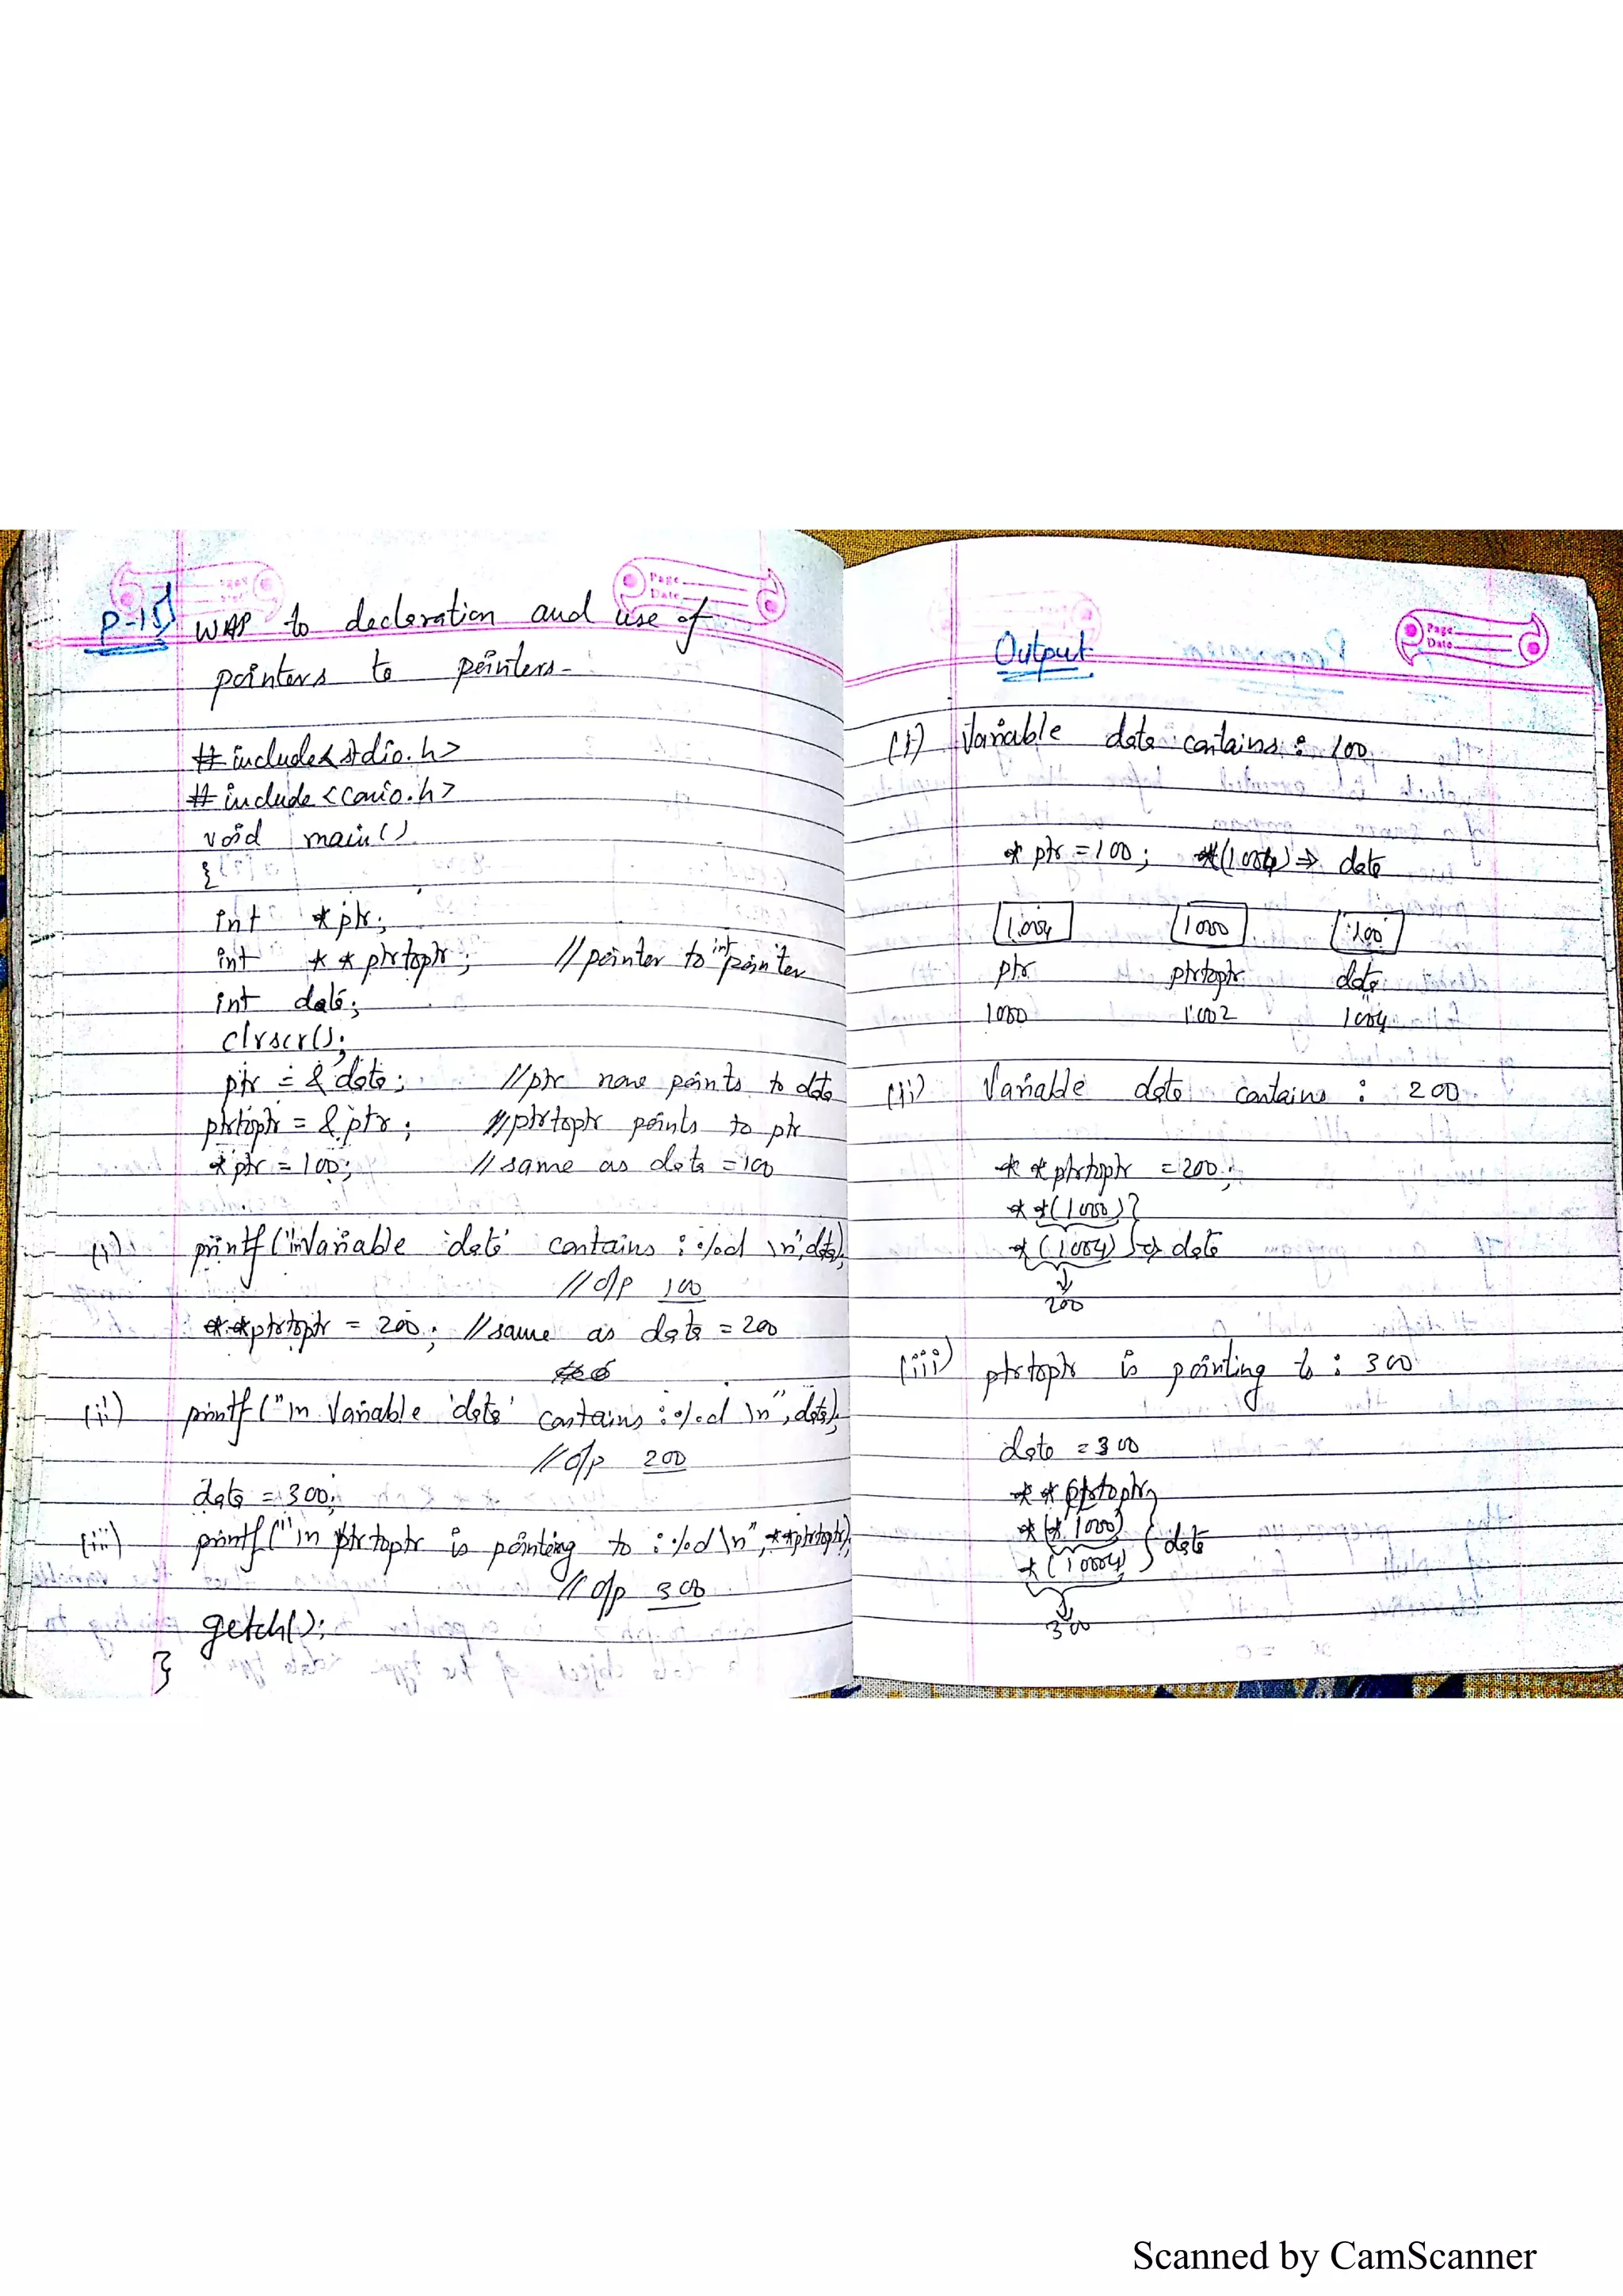 P-15] WAP to decleration and use of
pointers to pointers-
#include<stdio.h>
#include<conio.h>
void main()
{
int *ptr;
int **ptrtoptr; //pointer to int pointer
int data;
clrscr();
ptr = &data; //ptr now points to data
ptrtoptr = &ptr; //ptrtoptr points to ptr
*ptr = 100; //same as data = 100
(i) printf("\nVariable 'data' contains : %d \n", data);
//o/p 100
**ptrtoptr = 200; //same as data = 200
(ii) printf("\n Variable 'data' contains : %d \n", data);
//o/p 200
data = 300;
(iii) printf("\n ptrtoptr is pointing to : %d\n", **ptrtoptr);
//o/p 300
getch();
}
Page
Date
Output
Page
Date
(i) Variable data contains : 100
*ptr = 100; *(1004) => data
1004 1000 100
ptr ptrtoptr data
1000 1002 1004
(ii) Variable data contains : 200
**ptrtoptr = 200;
**(1000)}
*(1004) } => data
200
(iii) ptrtoptr is pointing to : 300
data = 300
**ptrtoptr
*(*1000)
*(10004) } data
300
Scanned by CamScanner